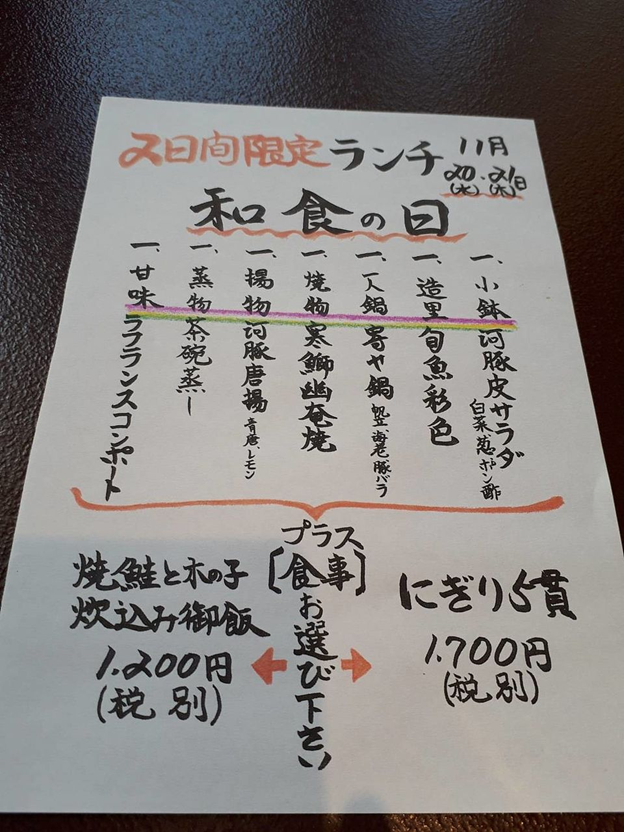 2日間限定ランチ 11月
20・21日
(水) (木)
和食の日
一、小鉢 河豚皮サラダ 白菜 葱 ポン酢
一、造里 旬魚彩色
一、一人鍋 寄せ鍋 帆立 海老 豚バラ
一、焼物 寒鰤幽奄焼
一、揚物 河豚唐揚 青唐 レモン
一、蒸物 茶碗蒸し
一、甘味 ラフランスコンポート
プラス
[食事]
お選び下さい
にぎり5貫
1.700円
(税別)
焼鮭と木の子
炊込み御飯
1.200円
(税別)